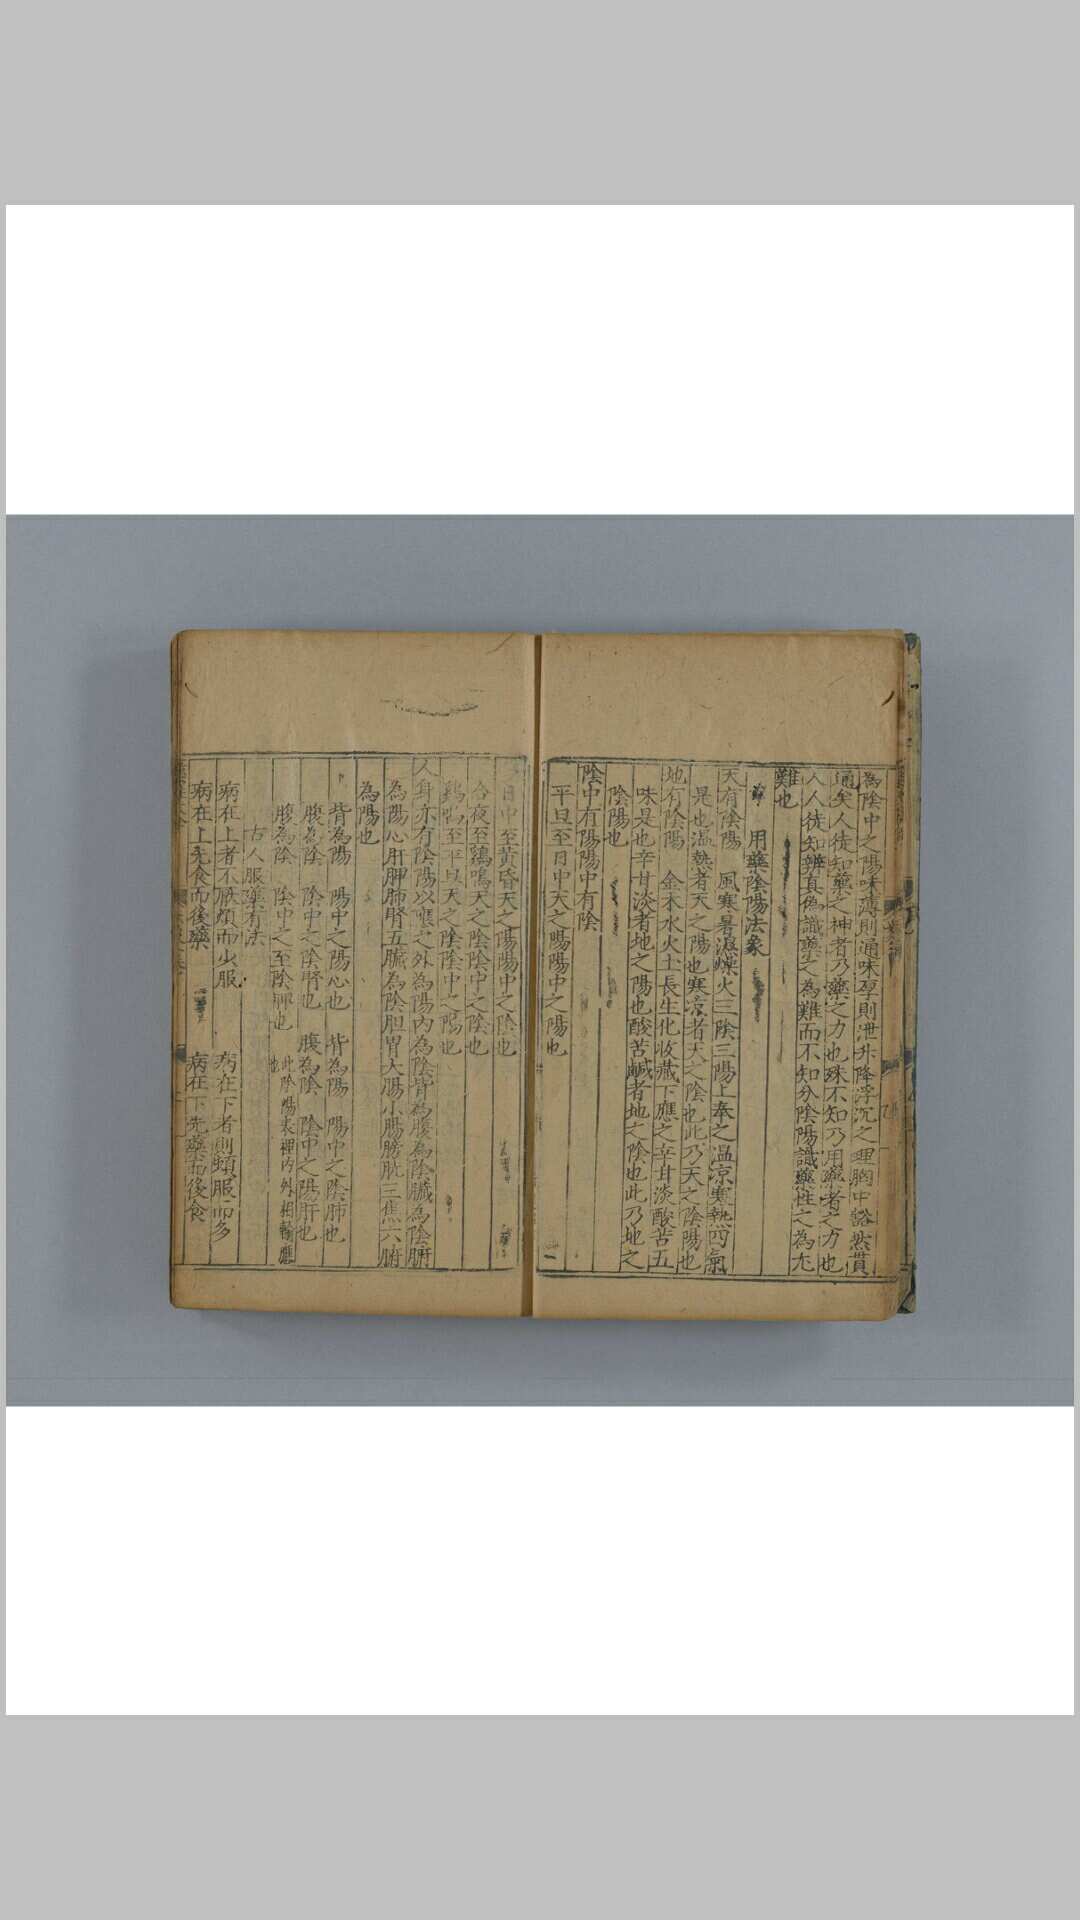 為陰中之陽味薄則通味厚則泄升降浮沉之理胸中豁然貫
通矣人徒知藥之神者乃藥之力也殊不知乃用藥者之力也
人人徒知辨真偽識藥之為難而不知分陰陽識藥性之為尤
難也
用藥陰陽法象
天有陰陽 風寒暑濕燥火三陰三陽上奉之温凉寒熱四氣
是也温熱者天之陽也寒凉者天之陰也此乃天之陰陽也
地有陰陽 金木水火土長生化收藏下應之辛甘淡酸苦五
味是也辛甘淡者地之陽也酸苦鹹者地之陰也此乃地之
陰陽也
陰中有陽陽中有陰
平旦至日中天之陽陽中之陽也
日中至黃昏天之陽陽中之陰也
合夜至鷄鳴天之陰陰中之陰也
鷄鳴至平旦天之陰陰中之陽也
人身亦有陰陽以 之外為陽内為陰背為 腹為陰臟為陰腑
為陽心肝脾肺腎五臟為陰胆胃大腸小腸膀胱三焦六腑
為陽也
背為陽 陽中之陽心也 背為陽 陽中之陰肺也
腹為陰 陰中之陰腎也 腹為陰 陰中之陽肝也
腹為陰 陰中之至陰脾也 此陰陽表裡内外相輸應
也
古人服藥有法
病在上者不厭頻而少服 病在下者則頻服而多
病在上先食而後藥 病在下先藥而後食